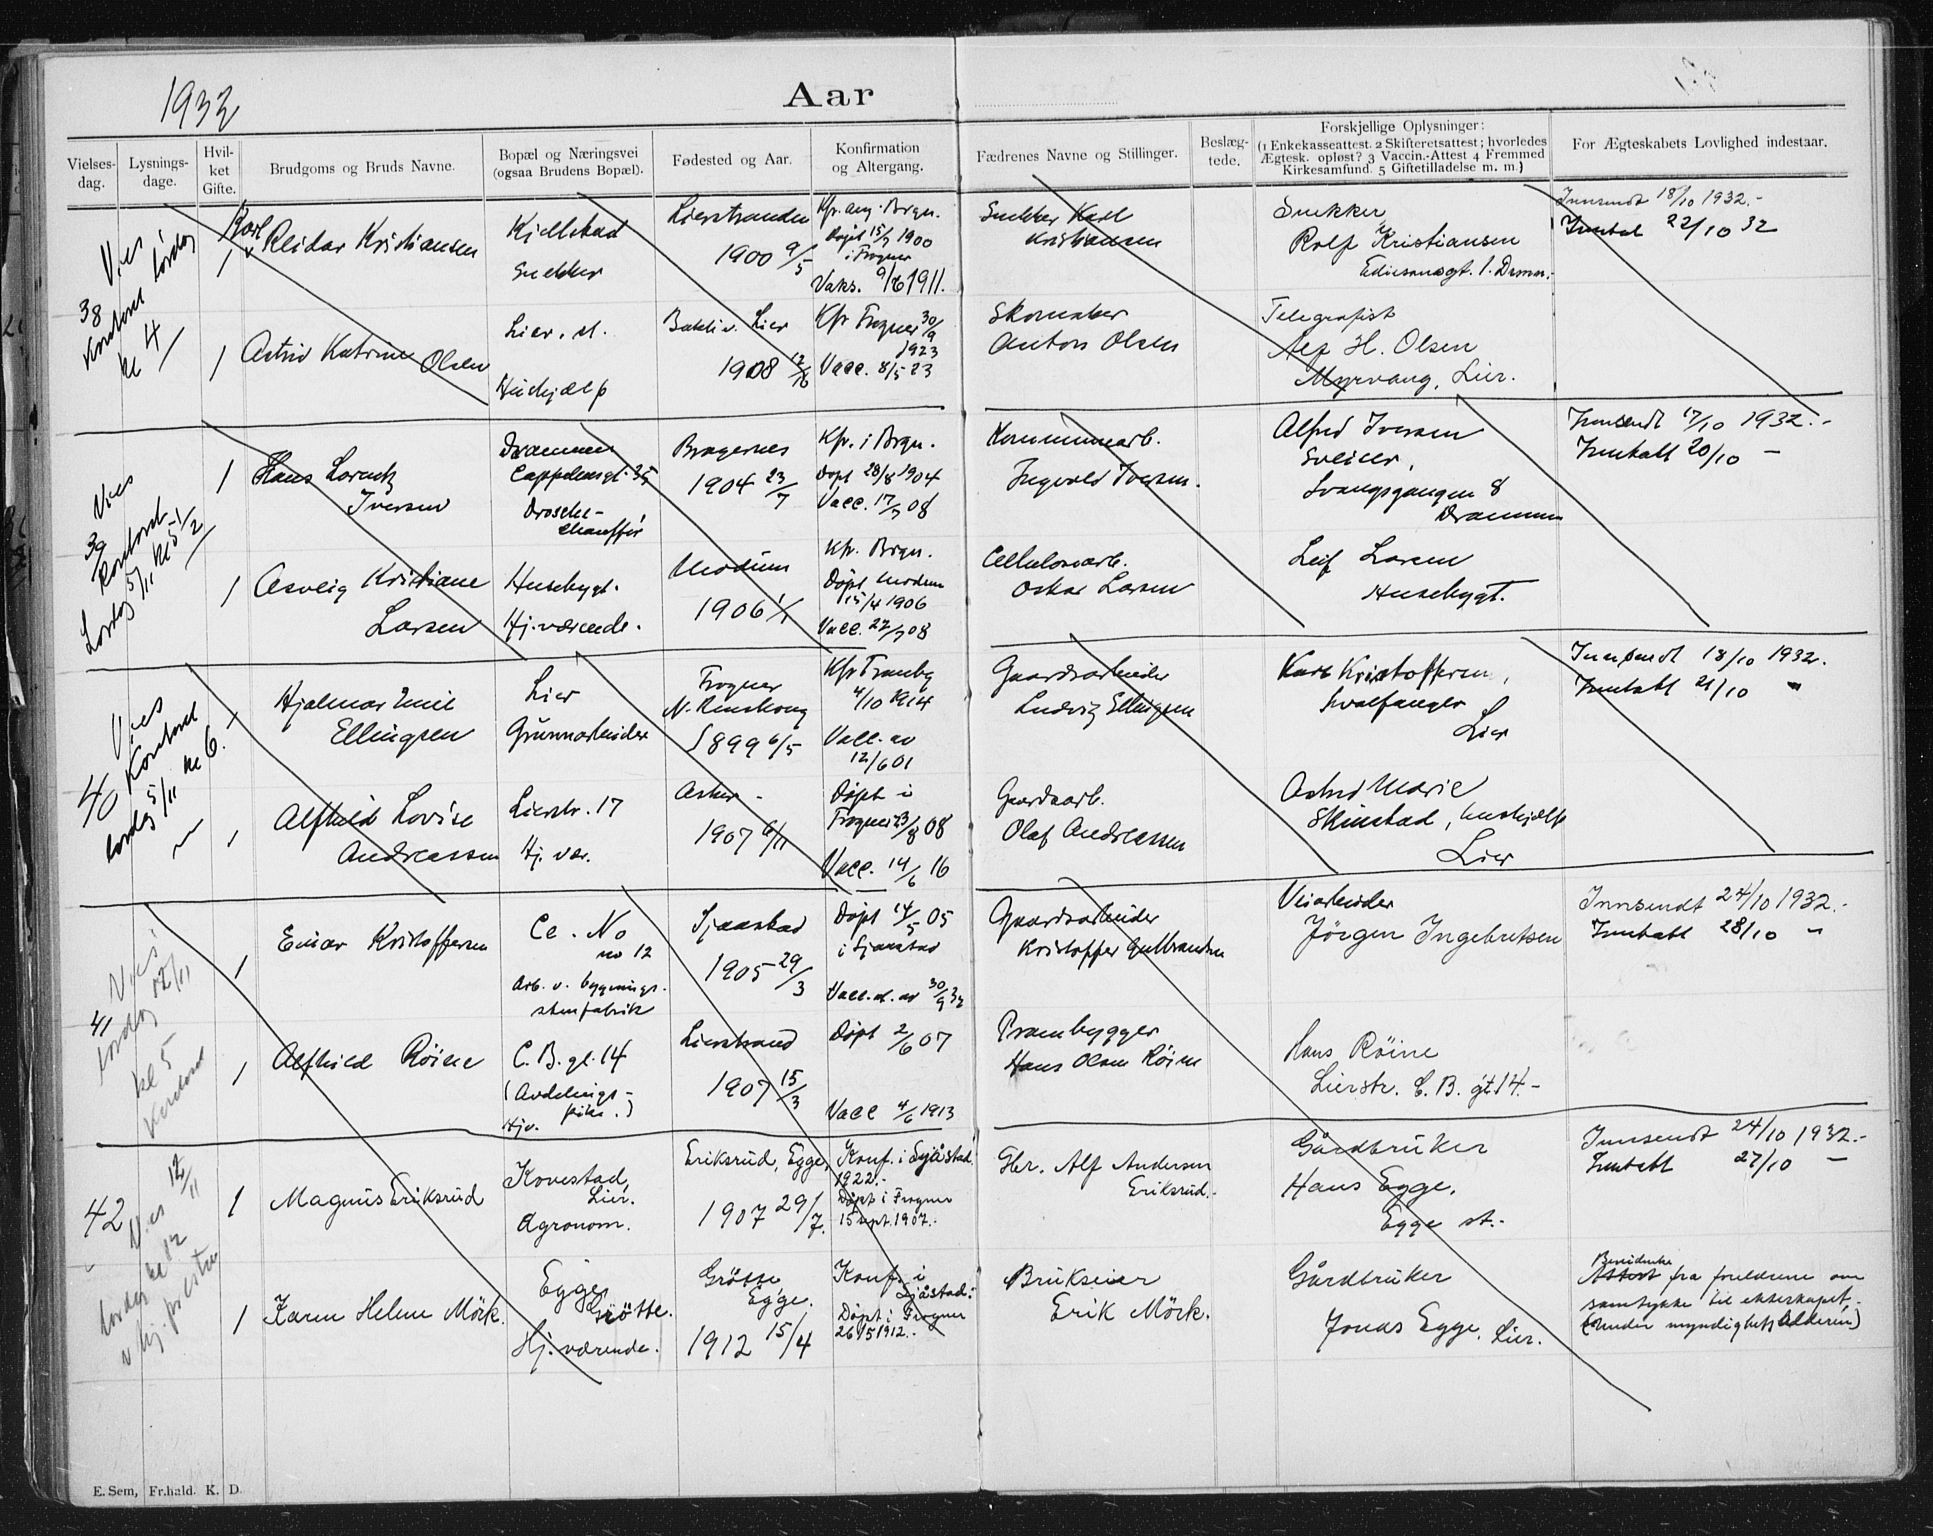 1932
Aar
Vielses-dag.
Lysnings-dage.
Hvil-ket Gifte.
Brudgoms og Bruds Navne.
Bopæl og Næringsvei
(ogsaa Brudens Bopæl).
Fødested og Aar.
Konfirmation
og Altergang.
Fædrenes Navne og Stillinger.
Beslæg-
tede.
Forskjellige Oplysninger:
(1 Enkekasseattest. 2 Skifteretsattest; hvorledes
Ægtesk. opløst? 3 Vaccin.-Attest 4 Fremmed
Kirkesamfund. 5 Giftetilladelse m. m.)
For Ægteskabets Lovlighed indestaar.
38
Vies
Kontoret lørdag
kl 4
1
Karl
Reidar Kristiansen
Kjellstad
Snekker
Lierstranden
1900 9/5
Kfr. Brgn.
Døpt 15/7 1900
i Frogner
Vaks. 9/6 1911.
Snekker Karl
Kristiansen
Snekker
Rolf Kristiansen
Innsendt 18/10 1932.-
Inntatt 22/10 32
1
Astrid Katrine
Olsen
Lier. st.
Hushjælp
Lier
1908
Kfr Frogner 30/9
1923
Vacc. 8/5 23
Skomaker
Anton Olsen
Telegrafist
Alf H. Olsen
Myrvang, Lier.
39
Vies
Kontoret
Lørdag 5/11 kl 5 1/2
1
Hans Lorentz
Iversen
Drammen
Cappelensgt. 35
Drosche-
chauffør
Bragernes
1904 23/7
Kfr. i Brgn.
Døpt 28/8 1904
Vacc. 17/7 08
Kommunearb.
Ingvald Iversen.
Alfred Iversen
Sveiser,
Svangsgangen 8
Drammen
Innsendt 17/10 1932.-
Inntatt 20/10 -
1
Aasveig Kristiane
Larsen
Husebygt.
Hj. værende.
Modum
1906 1/1
Kfr. Brgn.
Døpt Modum
15/4 1906
Vacc. 27/7 08
Cellulosearb.
Oskar Larsen
Leif Larsen
Husebygt.
40
Vies
Kontoret
lørdag 5/11 kl 6.
1
Hjalmar Emil
Ellingsen
Lier
Grunnarbeider
Frogner
1899 6/5
Kfr Tranby
4/10 1914
Vacc. av
12/6 01
Gaardsarbeider
Ludvig Ellingsen
Karl Kristoffersen,
hvalfanger
Lier
Innsendt 18/10 1932.
Inntatt 21/10 "
1
Alfhild Lovise
Andreassen
Lierstr. 17
Hj. vær.
Asker -
1907 6/11
Døpt i
Frogner 23/8 08
Vacc. 14/6 16
Gaardsarb.
Olaf Andreassen
Astrid Marie
Skinstad, hushjælp
Lier
41
Vies
lørdag 12/11
kl 5
Kontoret
1
Einar Kristoffersen
Ce. No
no 12
Arb. v. bygnings-
stenfabrik
Sjaastad
1905 29/3
Døpt 14/5 05
i Sjaastad
Vacc. at. av 30/9 32
Gaardsarbeider
Kristoffer Gulbrandsen
Veiarbeider
Jörgen Ingebretsen
Innsendt 24/10 1932.-
Inntatt 28/10 "
1
Alfhild Røine
C. B. gt. 14
(Avdelings-
pike.)
Hjv.
Lierstrand
1907 15/3
Døpt 2/6 07
Vacc 4/6 1913
Prambygger
Hans Olsen Røine
Hans Röine
Lierstr. C. B. gt 14.-
42
Vies 12/11
lørdag kl 12
v/hj. presten
1
Magnus Eriksrud
Kovestad,
Lier.
Agronom.
Eriksrud, Egge,
1907 29/7.
Konf. i Sjåstad
1922.-
Døpt i Frogner
15 sept. 1907.-
Gbr. Alf Andersen
Eriksrud.-
Gårdbruker
Hans Egge.
Egge st.-
Innsendt 24/10 1932.-
Inntatt 27/10 -
1
Karen Helene Mörk.
Egge,
Grötte.
Hj. værende.
Grötte
Egge.
1912 15/4
Konf. i
Sjåstad.
Döpt i Frogner
26/5 1912.-
Brukseier
Erik Mörk.
Gårdbruker
Jonas Egge. Lier.
fra foreldrene om
samtykke til ekteskapet.-
(under myndighetsalderen)
E. Sem, Fr.hald. K. D.